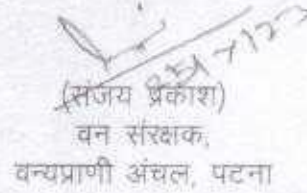 (संजय प्रकाश)
वन संरक्षक,
वन्यप्राणी अंचल, पटना